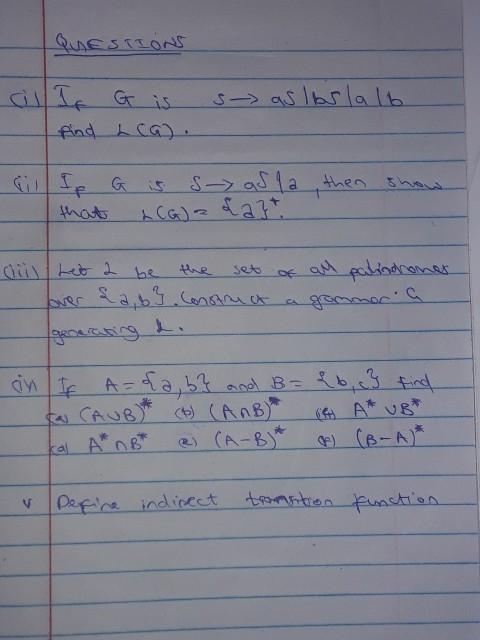 QUESTIONS
(i) If G is S → aS/bS/a/b
find L(G).
(ii) If G is S → aS/a, then show
that L(G) = {a}⁺.
(iii) Let L be the set of all palindromes
over {a,b}. Construct a grammar G
generating L.
(iv) If A = {a,b} and B = {b,c} find
(a) (A∪B)* (b) (A∩B)* (c) A* ∪B*
(d) A* ∩B* (e) (A-B)* (f) (B-A)*
v Define indirect transition function